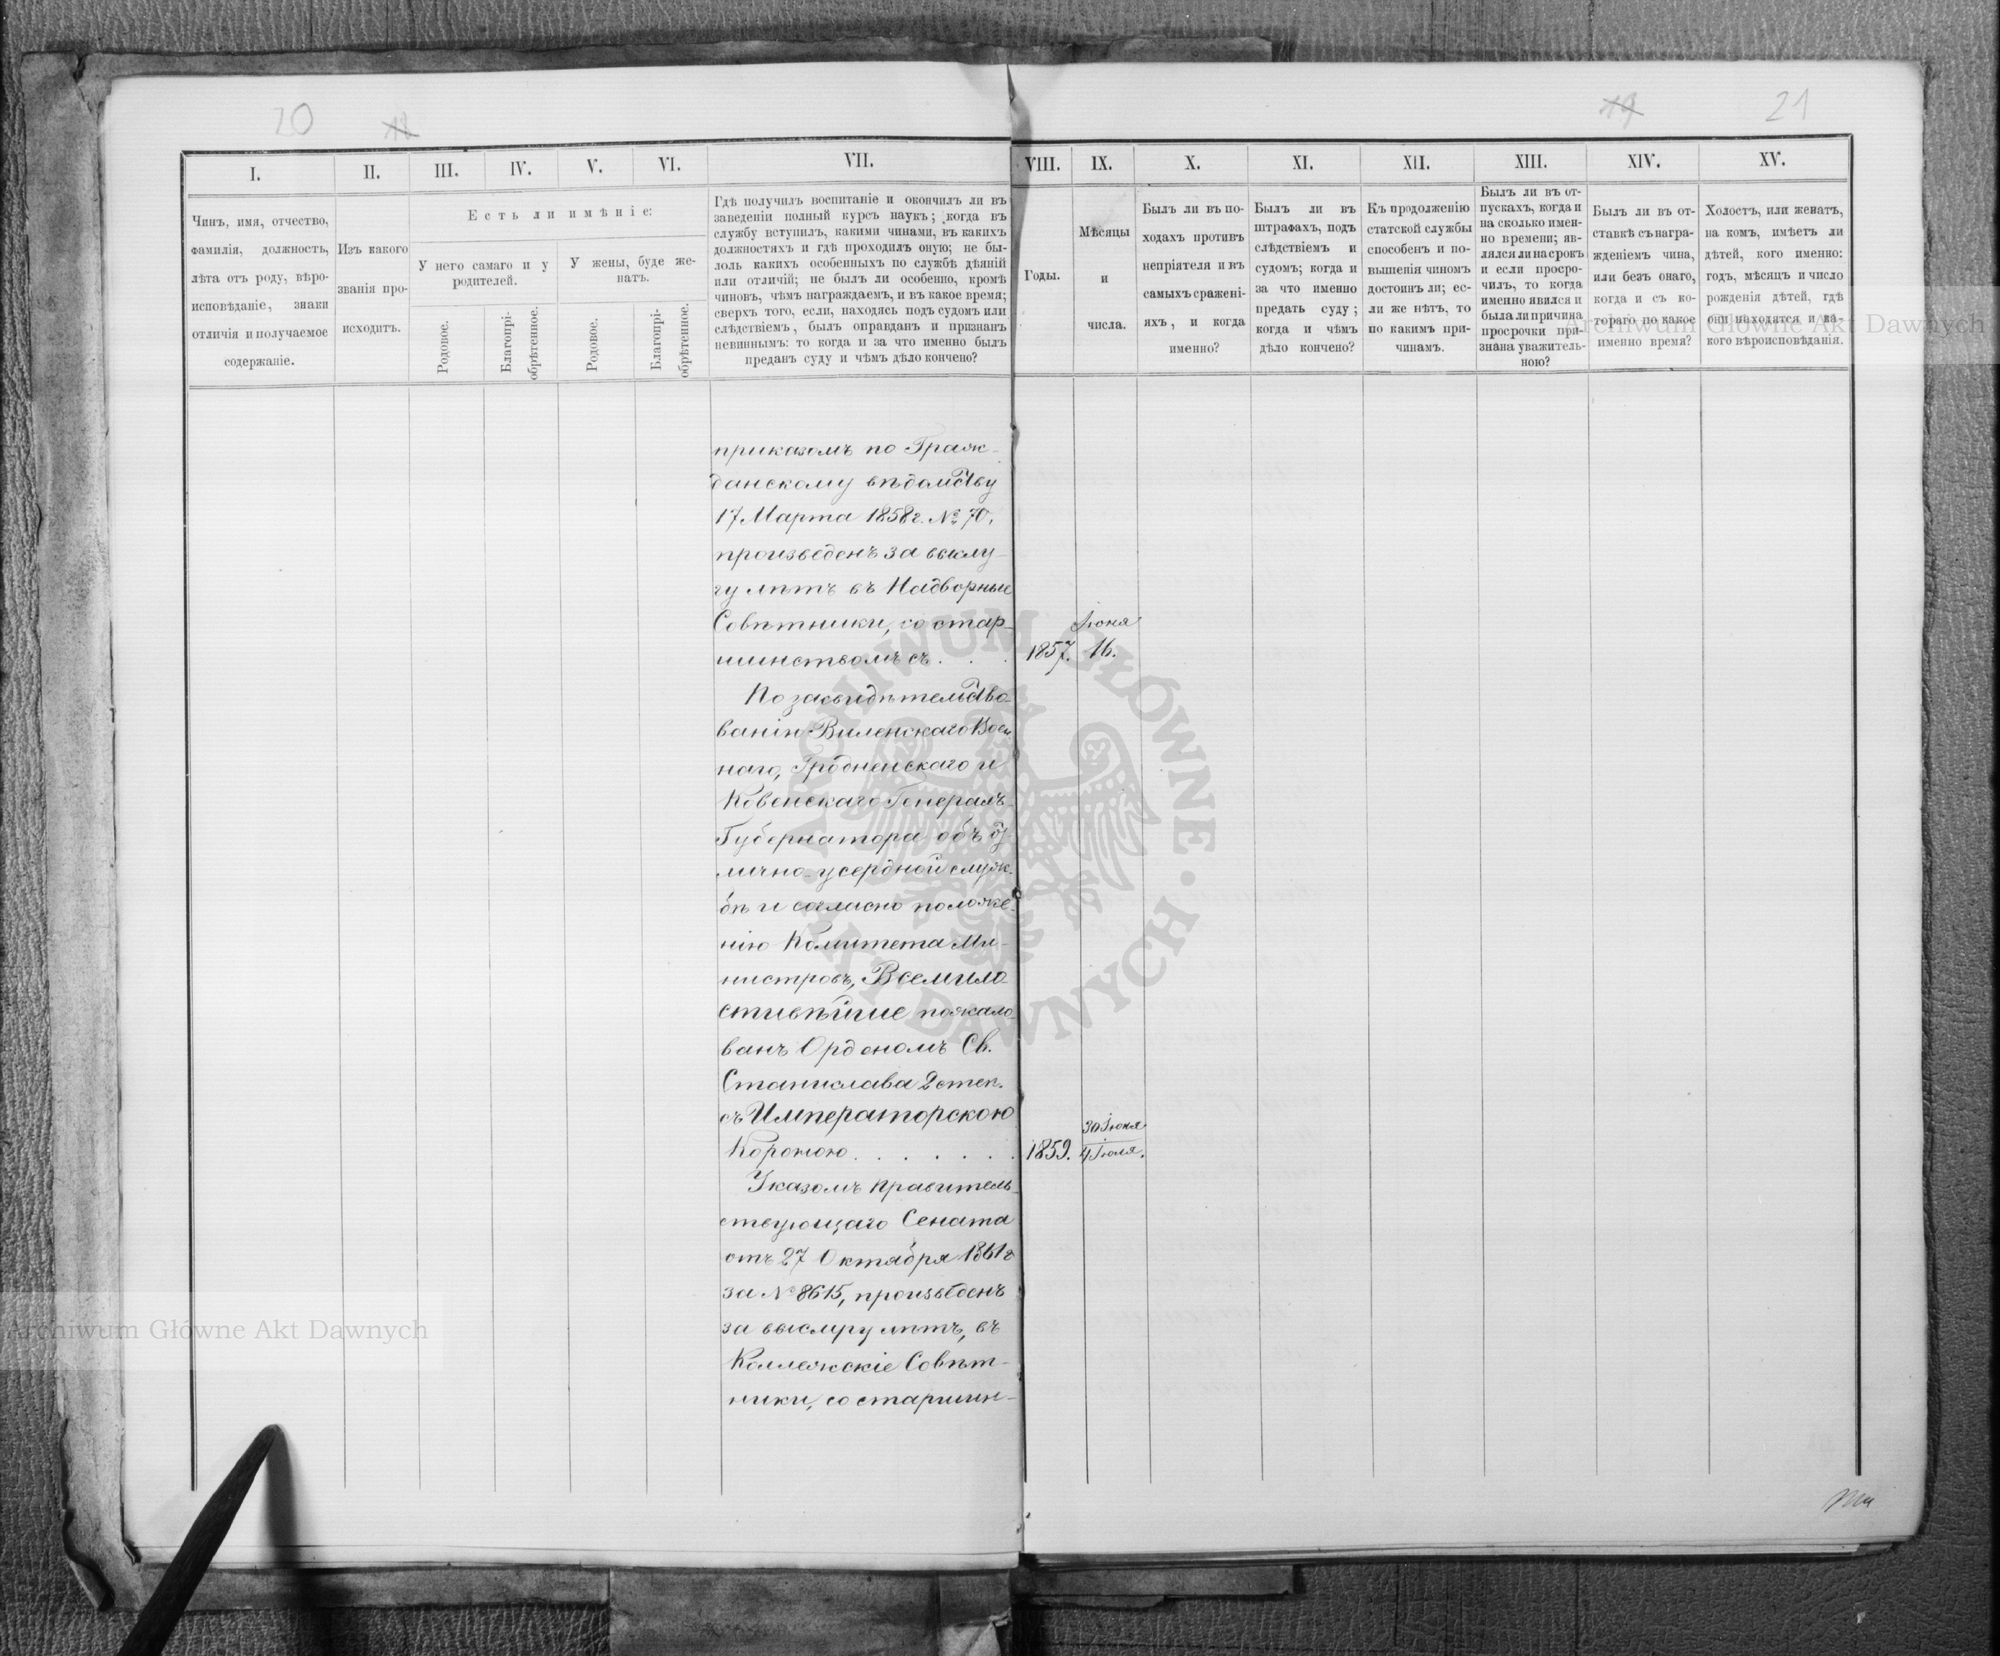 20
18
19
21
I.
II.
III.
IV.
V.
VI.
VII.
VIII.
IX.
X.
XI.
XII.
XIII.
XIV.
XV.
Чинъ, имя, отчество,
фамилія, должность,
лѣта отъ роду, вѣро-
исповѣданіе, знаки
отличія и получаемое
содержаніе.
Изъ какого
званія про-
исходитъ.
Есть ли имѣніе:
У него самаго и у
родителей.
У жены, буде же-
натъ.
Родовое.
Благопрі-
обрѣтенное.
Родовое.
Благопрі-
обрѣтенное.
Гдѣ получилъ воспитаніе и окончилъ ли въ
заведеніи полный курсъ наукъ; когда въ
службу вступилъ, какими чинами, въ какихъ
должностяхъ и гдѣ проходилъ оную; не бы-
лоль какихъ особенныхъ по службѣ дѣяній
или отличій; не былъ ли особенно, кромѣ
чиновъ, чѣмъ награждаемъ, и въ какое время;
сверхъ того, если, находясь подъ судомъ или
слѣдствіемъ, былъ оправданъ и признанъ
невиннымъ: то когда и за что именно былъ
преданъ суду и чѣмъ дѣло кончено?
Годы.
Мѣсяцы
и
числа.
Былъ ли въ по-
ходахъ противъ
непріятеля и въ
самыхъ сражені-
яхъ, и когда
именно?
Былъ ли въ
штрафахъ, подъ
слѣдствіемъ и
судомъ; когда и
за что именно
предать суду;
когда и чѣмъ
дѣло кончено?
Къ продолженію
статской службы
способенъ и по-
вышенія чиномъ
достоинъ ли; ес-
ли же нѣтъ, то
по какимъ при-
чинамъ.
Былъ ли въ от-
пускахъ, когда и
на сколько имен-
но времени; яв-
лялся ли на срокъ
и если просро-
чилъ, то когда
именно явился и
была ли причина
просрочки при-
знана уважитель-
ною?
Былъ ли въ от-
ставкѣ съ награ-
жденіемъ чина,
или безъ онаго,
когда и съ ко-
тораго по какое
именно время?
Холостъ, или женатъ,
на комъ, имѣетъ ли
дѣтей, кого именно:
годъ, мѣсяцъ и число
рожденія дѣтей, гдѣ
они находятся и ка-
кого вѣроисповѣданія.
приказомъ по Граж-
данскому вѣдомству
17 Марта 1858 г. № 70,
произведенъ за выслу-
гу лѣтъ въ Надворные
Совѣтники, со стар-
шинствомъ съ . . . 1857. Іюня 16.
По засвидѣтельство-
ванію Виленскаго Воен-
наго, Гродненскаго и
Ковенскаго Генералъ-
Губернатора объ от-
лично-усердной служ-
бѣ и согласно положе-
нію Комитета Ми-
нистровъ, Всемило-
стивѣйше пожало-
ванъ Орденомъ Св.
Станислава 2 степ.
съ Императорскою
Короною . . . . . . 1859. 30 Іюня / 4 Іюля.
Указомъ Правитель-
ствующаго Сената
отъ 27 Октября 1861 г
за № 8615, произведенъ
за выслугу лѣтъ, въ
Коллежскіе Совѣт-
ники, со старшин-
Archiwum Główne Akt Dawnych
Archiwum Główne Akt Dawnych
ARCHIWUM GŁÓWNE · AKT DAWNYCH ·